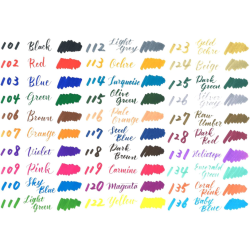 101 Black
102 Red
103 Blue
104 Green
106 Brown
107 Orange
108 Violet
109 Pink
110 Sky Blue
111 Light Green
112 Light Grey
113 Ochre
114 Turquoise
115 Olive Green
116 Pale Orange
117 Steel Blue
118 Dark Brown
119 Carmine
120 Magenta
122 Yellow
123 Gold Ochre
124 Beige
125 Dark Green
126 Grey
127 Raw Umber
128 Dark Red
131 Heliotrope
133 Emerald Green
135 Coral Pink
136 Baby Blue